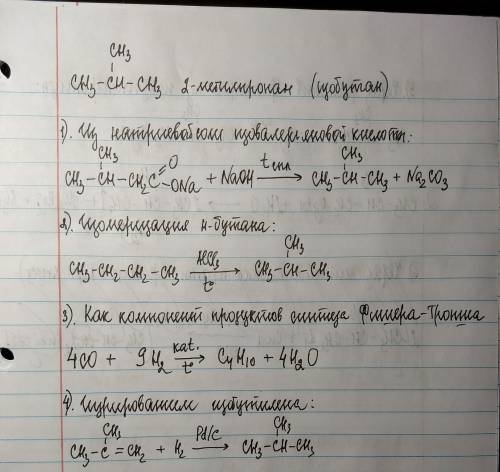 CH₃
CH₃-CH-CH₃ 2-метилпропан (изобутан)
1). Из натриевой соли изовалерьяновой кислоты:
CH₃ O t спл CH₃
CH₃-CH-CH₂C=ONa + NaOH → CH₃-CH-CH₃ + Na₂CO₃
2). Изомеризация н-бутана:
AlCl₃ CH₃
CH₃-CH₂-CH₂-CH₃ → CH₃-CH-CH₃
t°
3). Как компонент продуктов синтеза Фишера-Тропша
kat.
4CO + 9H₂ → C₄H₁₀ + 4H₂O
t°
4). Гидрированием изобутилена:
CH₃ Pd/C CH₃
CH₃-C=CH₂ + H₂ → CH₃-CH-CH₃